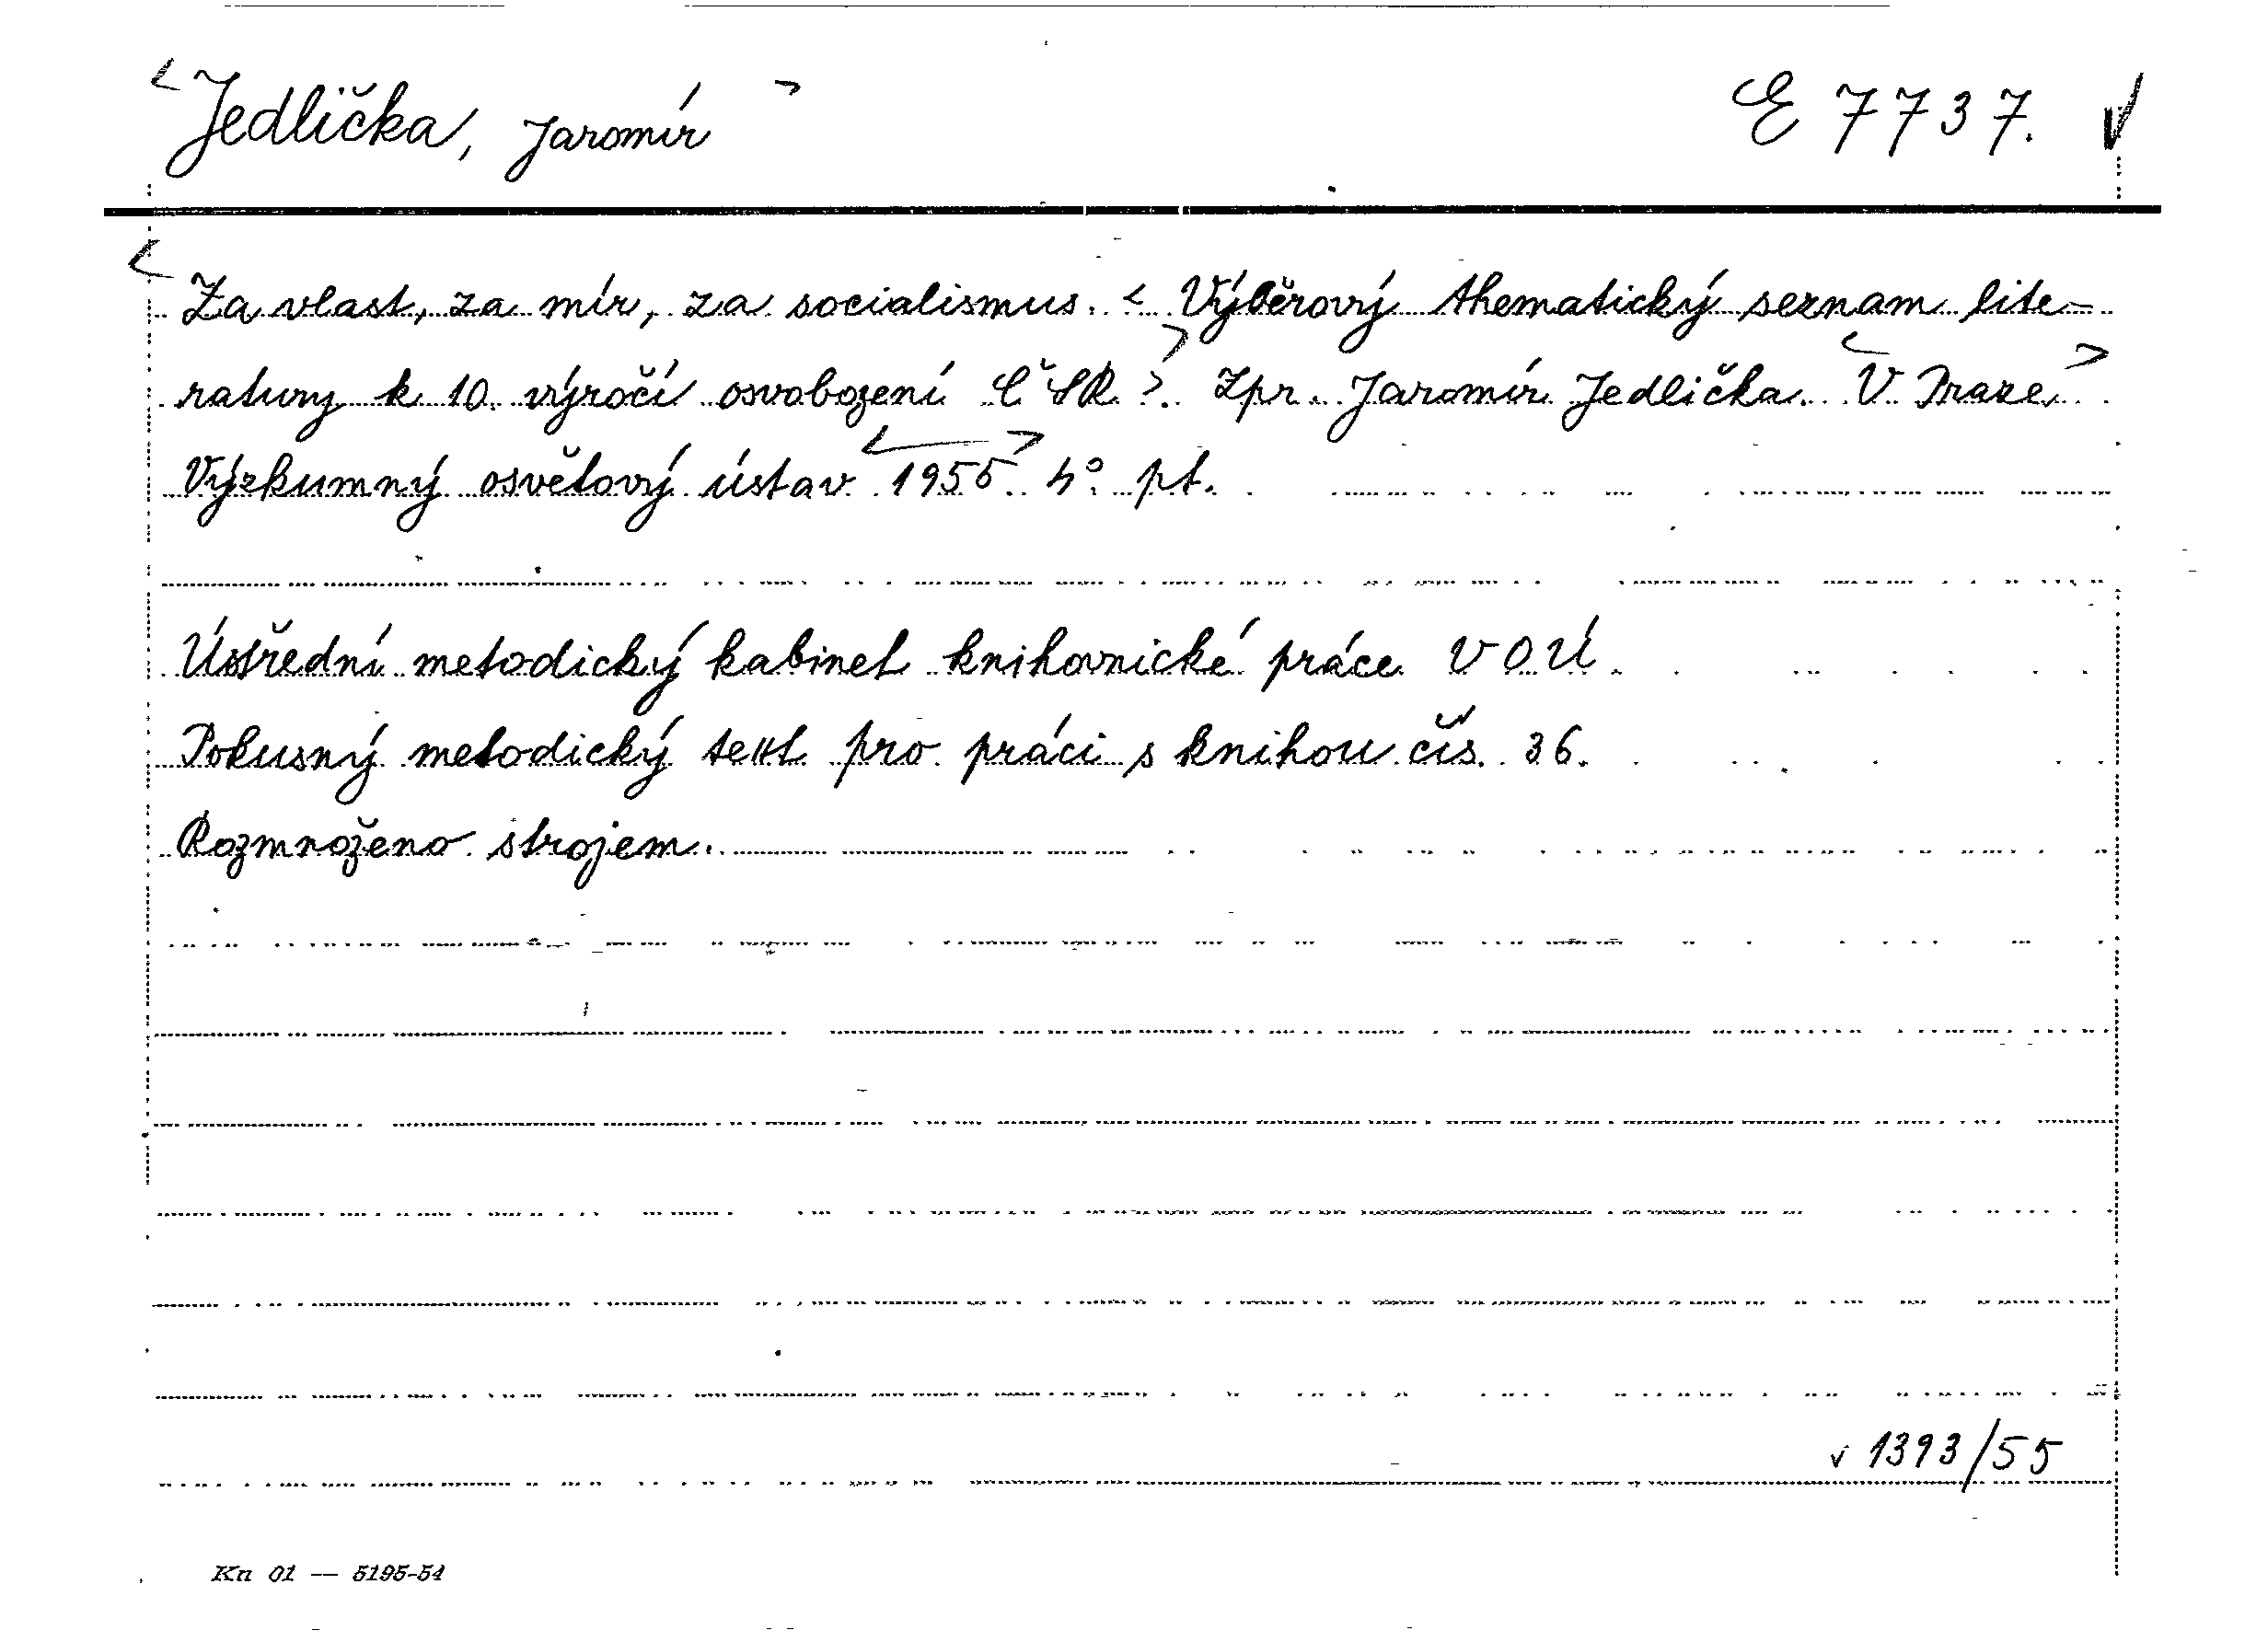 <Jedlička, Jaromír> E 7737. √
<Za vlast, za mír, za socialismus. <Výběrový thematický seznam lite-
ratury k 10. výročí osvobození ČSR>. Zpr. Jaromír Jedlička. <V Praze,>
Výzkumný osvětový ústav <1955>. 4°. pt.
Ústřední metodický kabinet knihovnické práce VOÚ.
Pokusný metodický text pro práci s knihou čís. 36.
Rozmnoženo strojem.
√ 1393/55
Kn 01 — 5195-54